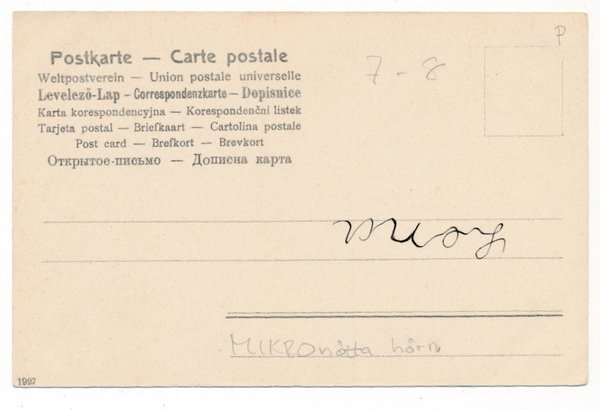 P
Postkarte — Carte postale
7-8
Weltpostverein — Union postale universelle
Levelező-Lap – Correspondenzkarte – Dopisnice
Karta korespondencyjna — Korespondenční listek
Tarjeta postal — Briefkaart — Cartolina postale
Post card — Brefkort — Brevkort
Открытое-письмо — Дописна карта
MIKRO hörn
1927